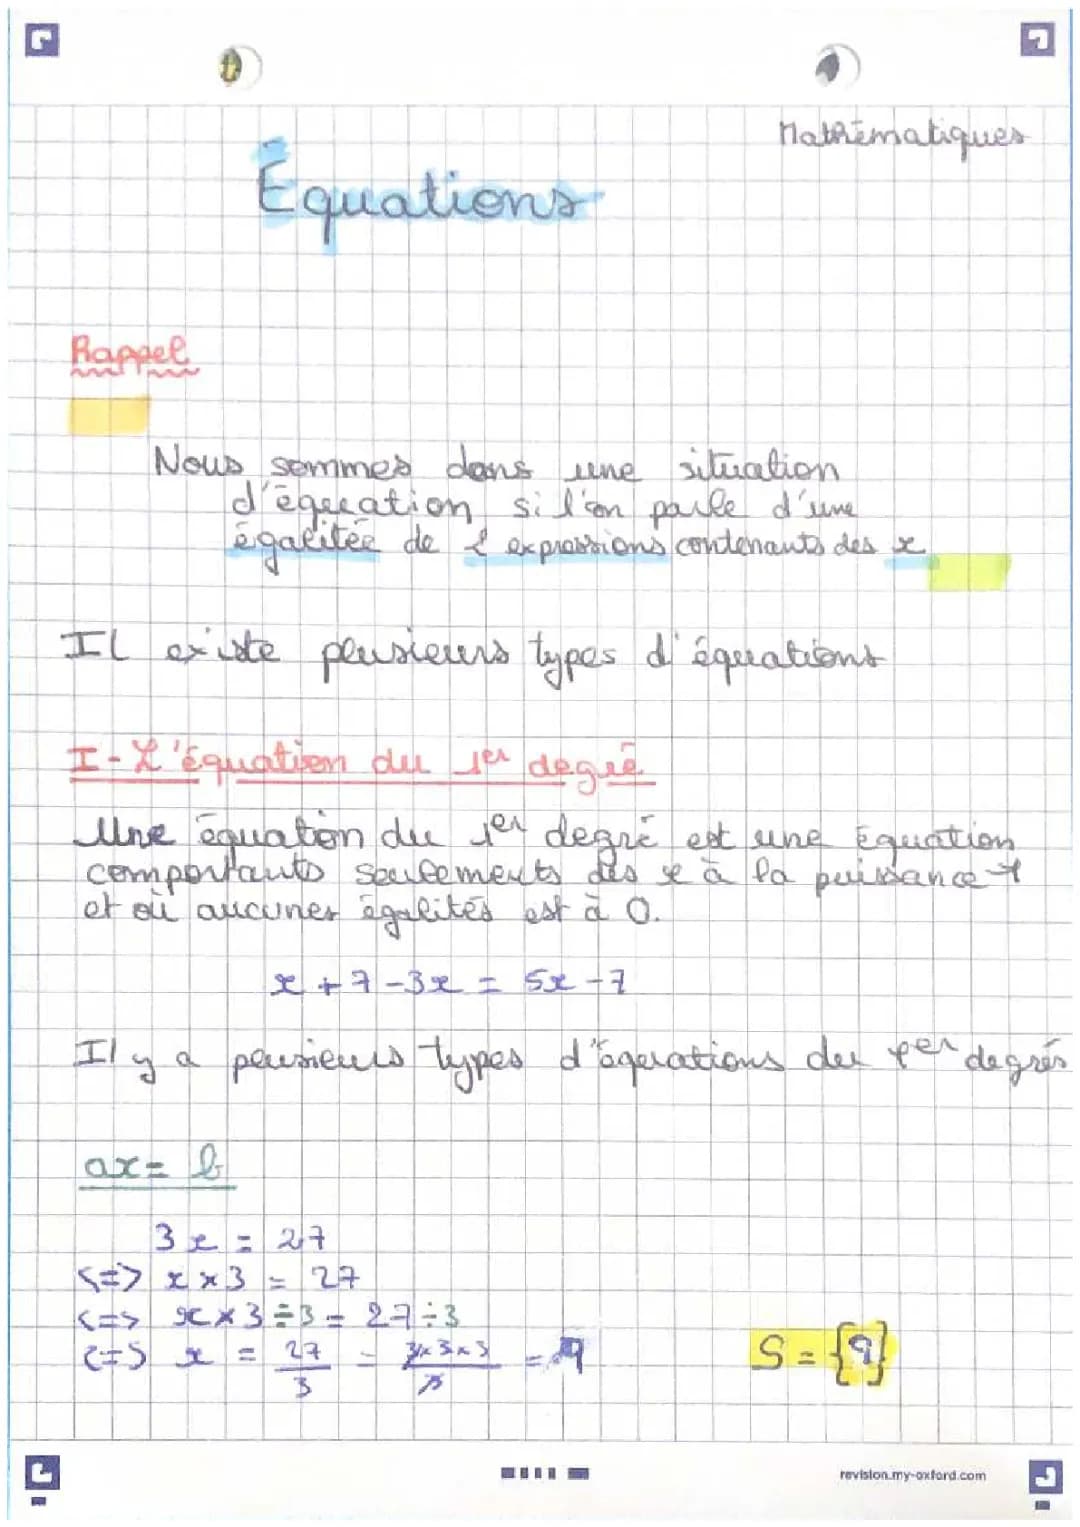 Mathématiques
Équations
Rappel
Nous sommes dans une situation
d'équation si l'on parle d'une
égalitée de 2 expressions contenants des x
Il existe plusieurs types d'équations
I - L'équation du 1er degré
Une équation du 1er degré est une équation
comportants seulements des x à la puissance 1
et où aucunes égalités est à 0.
x + 7 - 3x = 5x - 7
Il y a plusieurs types d'équations du 1er degrés
ax = b
3x = 27
<=> x × 3 = 27
<=> x × 3 ÷ 3 = 27 ÷ 3
<=> x = 27/3 = 3×3×3/3 = 9
S = {9}
revision.my-oxford.com